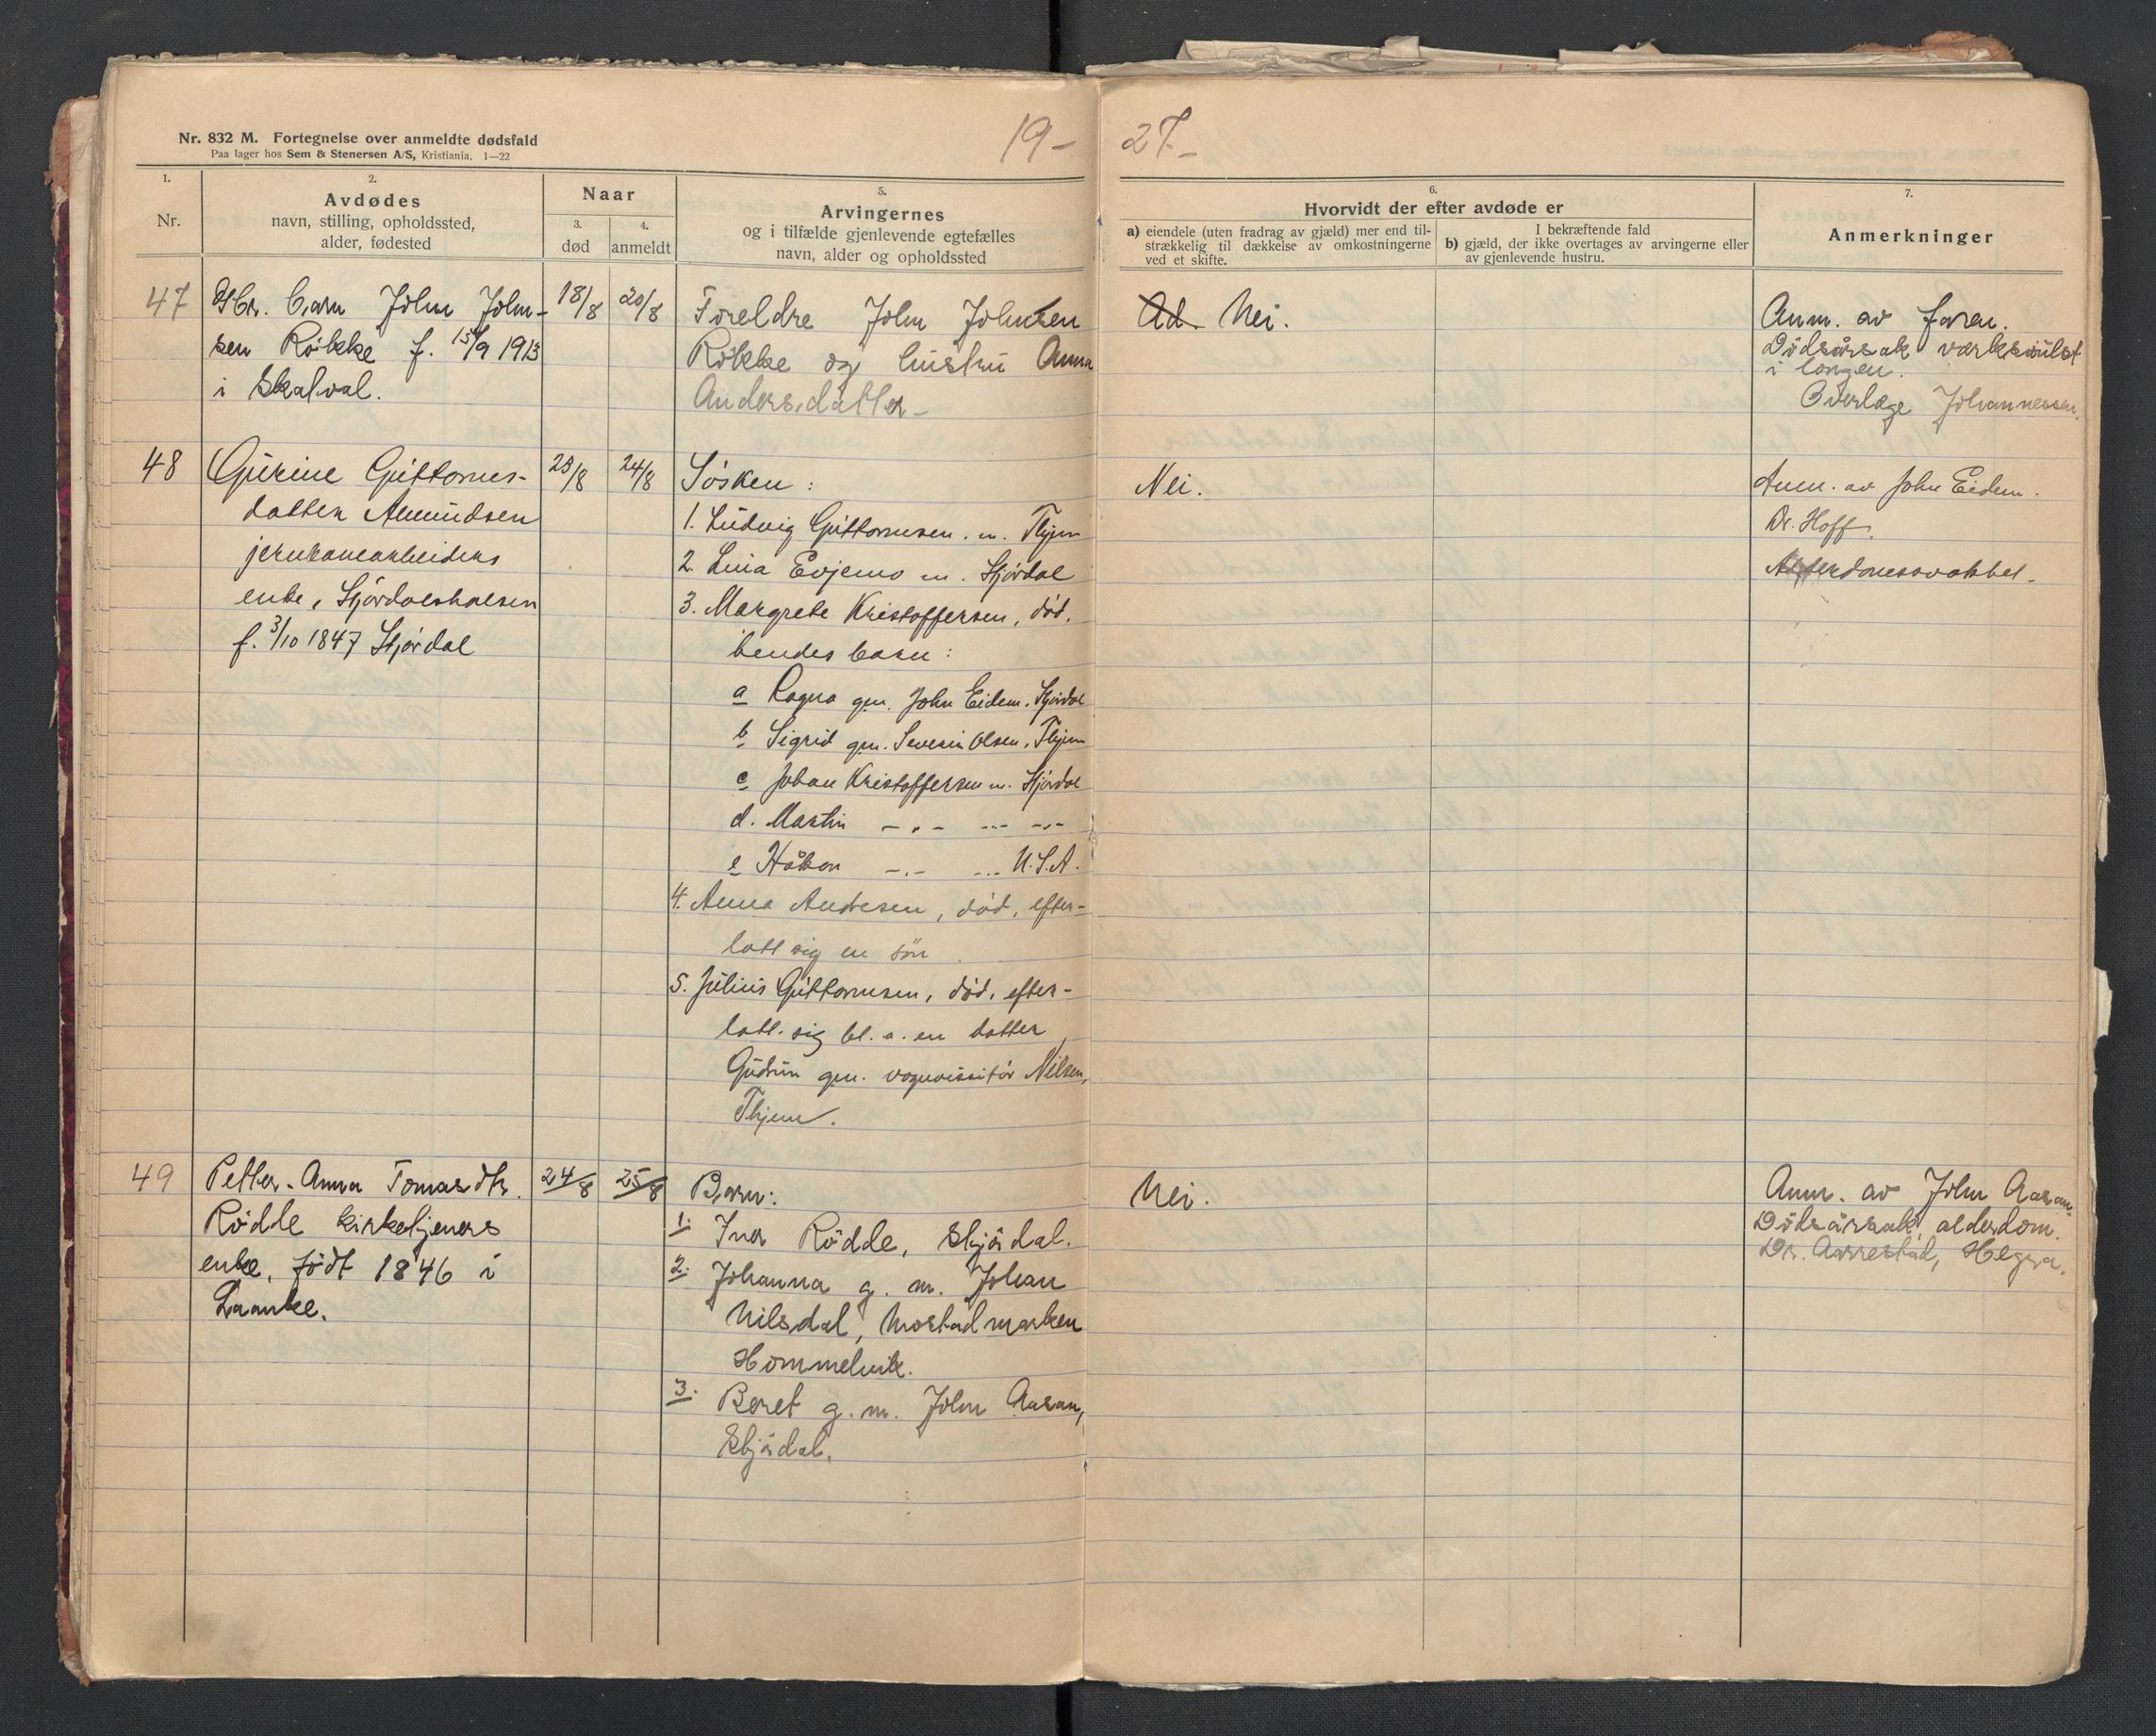 Nr. 832 M. Fortegnelse over anmeldte dødsfald
Paa lager hos Sem & Stenersen A/S, Kristiania. 1—22
19-
27.-
1.
Nr.
2.
Avdødes
navn, stilling, opholdssted,
alder, fødested
Naar
3.
død
4.
anmeldt
5.
Arvingernes
og i tilfælde gjenlevende egtefælles
navn, alder og opholdssted
6.
Hvorvidt der efter avdøde er
a) eiendele (uten fradrag av gjæld) mer end til-
strækkelig til dækkelse av omkostningerne
ved et skifte.
I bekræftende fald
b) gjæld, der ikke overtages av arvingerne eller
av gjenlevende hustru.
7.
Anmerkninger
47
barn John John-
sen Røkke f. 15/9 1913
i Skatval.
18/8
20/8
Foreldre John Johnsen
Røkke og hustru Anna
Andersdatter-
Ad. Nei.
Anm. av faren.
Dødsårsak verksvulst
i
Overlæge Johannessen.
48
Gurine Guttorms-
datter Amundsen
jernbanearbeiders
enke, Stjørdalshalsen
f. 3/10 1847 Stjørdal
23/8
24/8
Søsken:
1. Ludvig Guttormsen. m. Thjem
2. Lina Evjemo m. Stjørdal
3. Margrete Kristoffersen, død.
hendes barn:
a Ragna gm. John Eidem. Stjørdal
b Sigrid gm. Severin Olsen, Thjem
c Johan Kristoffersen m. Stjørdal
d. Martin -"- -"- -"-
e Håkon -"- -"- U.S.A.
4. Anna Andresen, død, efter-
latt sig en søn
5. Julius Guttormsen, død, efter-
latt sig bl. a. en datter
Gudrun gm. vognvisitør Nilsen,
Thjem.
Nei.
Anm. av John Eidem.
Dr. Hoff.
Alderdomssvakhet-
49
Petter-Anna Tomasdtr.
Rødde kirketjeners
enke, født 1846 i
Laanke.
24/8
25/8
Barn:
1. Iver Rødde, Stjørdal.
2. Johanna g. m. Johan
Nilsdal, Mostadmarken
Hommelvik.
3. Beret g. m. John Aasan,
Stjørdal.
Nei.
Anm. av John Aasan.
Dødsårsak, alderdom.
Dr. Aarrestad, Hegra.